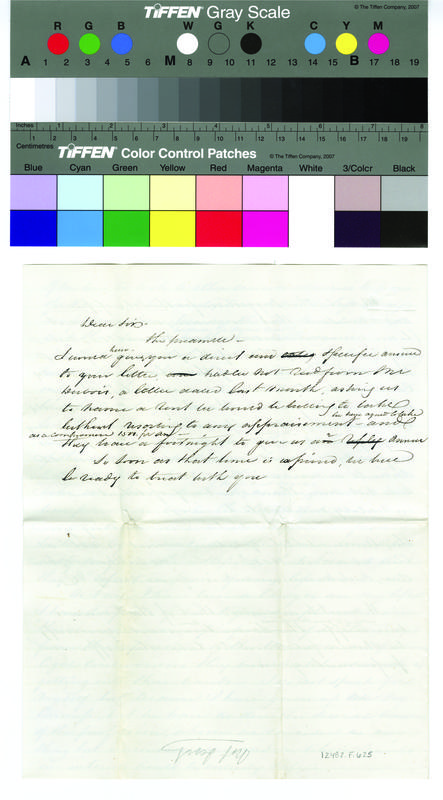 TIFFEN® Gray Scale
© The Tiffen Company, 2007
R G B W G K C Y M
A 1 2 3 4 5 6 M 8 9 10 11 12 13 14 15 B 17 18 19
Inches 1 2 3 4 5 6 7 8
Centimetres 1 2 3 4 5 6 7 8 9 10 11 12 13 14 15 16 17 18 19
TIFFEN® Color Control Patches
© The Tiffen Company, 2007
Blue Cyan Green Yellow Red Magenta White 3/Color Black
Dear Sir.
The preamble —
here
I would give you a direct and specific answer
to your letter had we not recd from Mr
a letter dated last month, asking us
to name a rent we would be willing to take
we have agreed to take
without resorting to any appraisement — and
as a compromise
they have a fortnight to give us an answer
So soon as that time is expired, we will
be ready to treat with you
12482.F.625